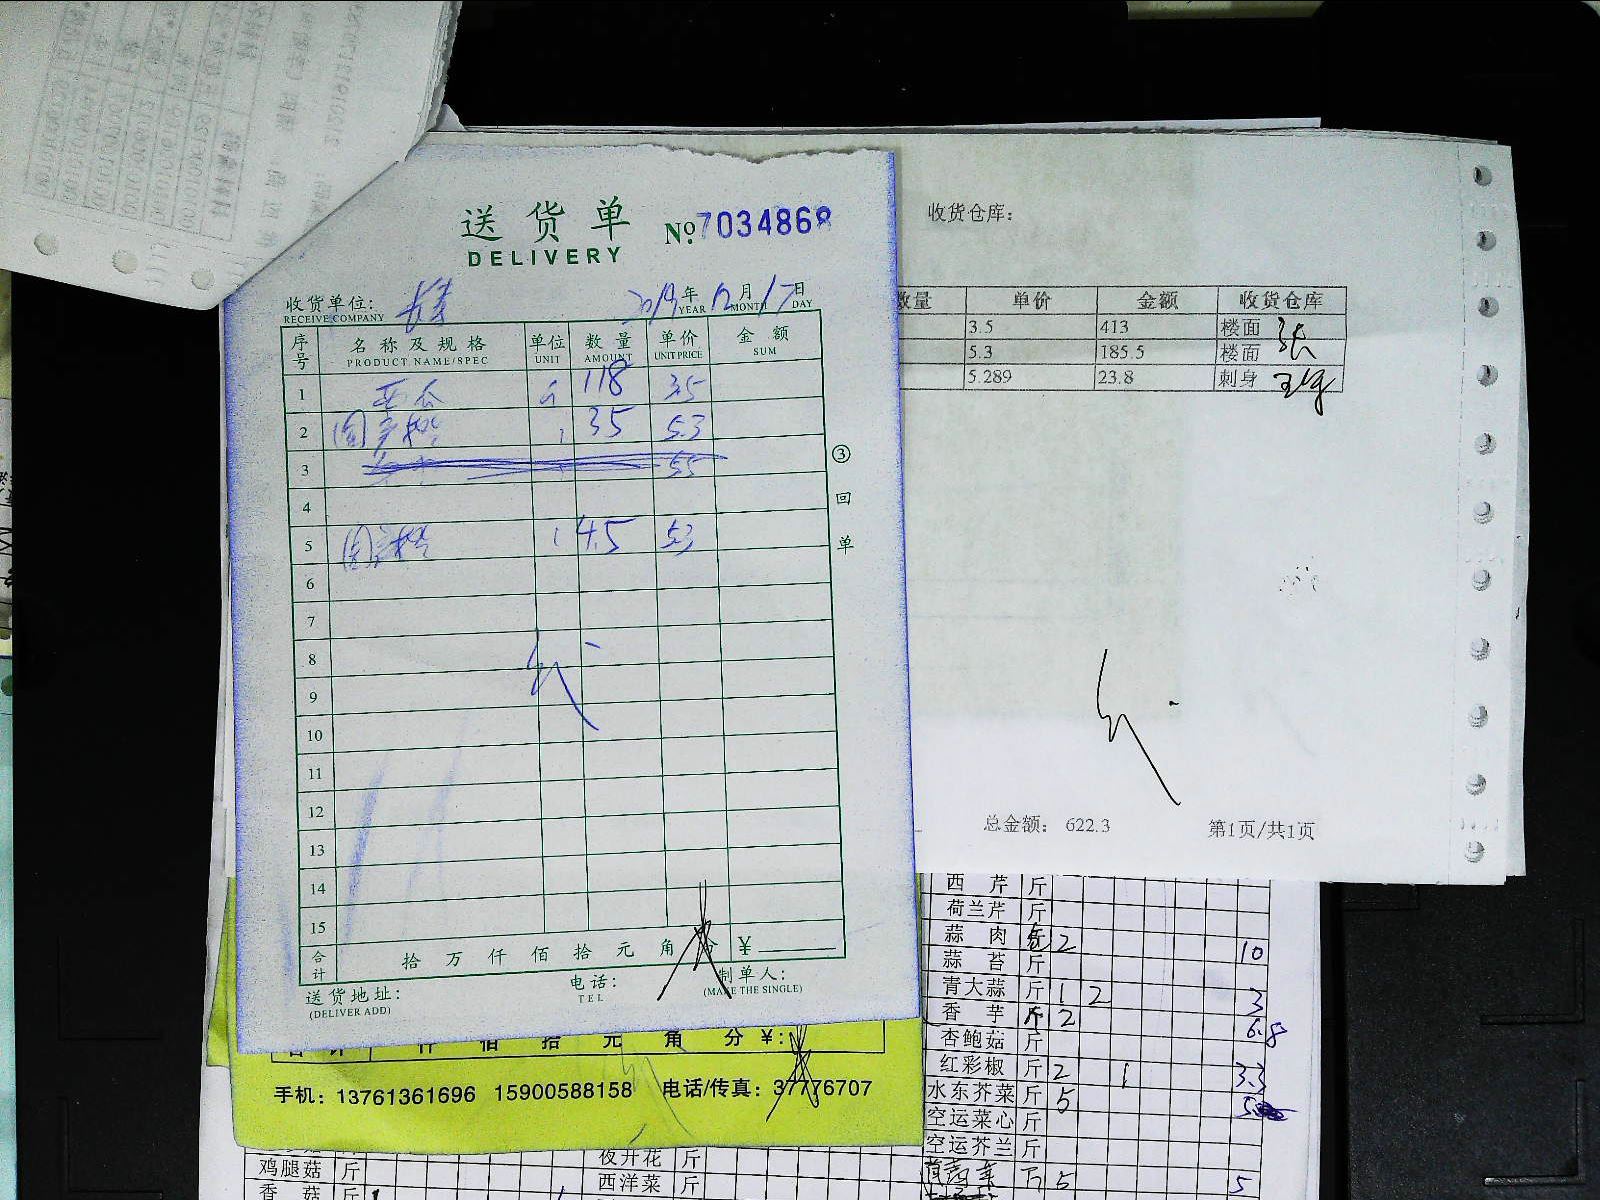 送货单
№ 7034868
DELIVERY
收货单位:
RECEIVE COMPANY
2019年12月17日
YEAR MONTH DAY
序号 名称及规格 单位 数量 单价 金额
PRODUCT NAME/SPEC UNIT AMOUNT UNIT PRICE SUM
1 西瓜 斤 118 3.5
2 国产橙 35 5.3
3 5.5
4
5 国产橙 4.5 5.3
6
7
8
9
10
11
12
13
14
15
合计 拾 万 仟 佰 拾 元 角 分 ¥
送货地址:
(DELIVER ADD)
电话:
TEL
制单人:
(MAKE THE SINGLE)
③回单
收货仓库:
数量 单价 金额 收货仓库
3.5 413 楼面
5.3 185.5 楼面
5.289 23.8 刺身
总金额: 622.3
第1页/共1页
合计 仟 佰 拾 元 角 分 ¥:
手机: 13761361696 15900588158 电话/传真: 37776707
西芹 斤
荷兰芹 斤
蒜肉 斤 2 10
蒜苔 斤
青大蒜 斤 1 2 3
香芋 斤 2 6.8
杏鲍菇 斤
红彩椒 斤 2 1 3.3
水东芥菜 斤 5 5
空运菜心 斤
空运芥兰 斤
5 5
鸡腿菇 斤
香菇 斤
夜开花 斤
西洋菜 斤